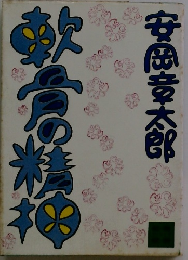 安岡章太郎
軟骨の精神